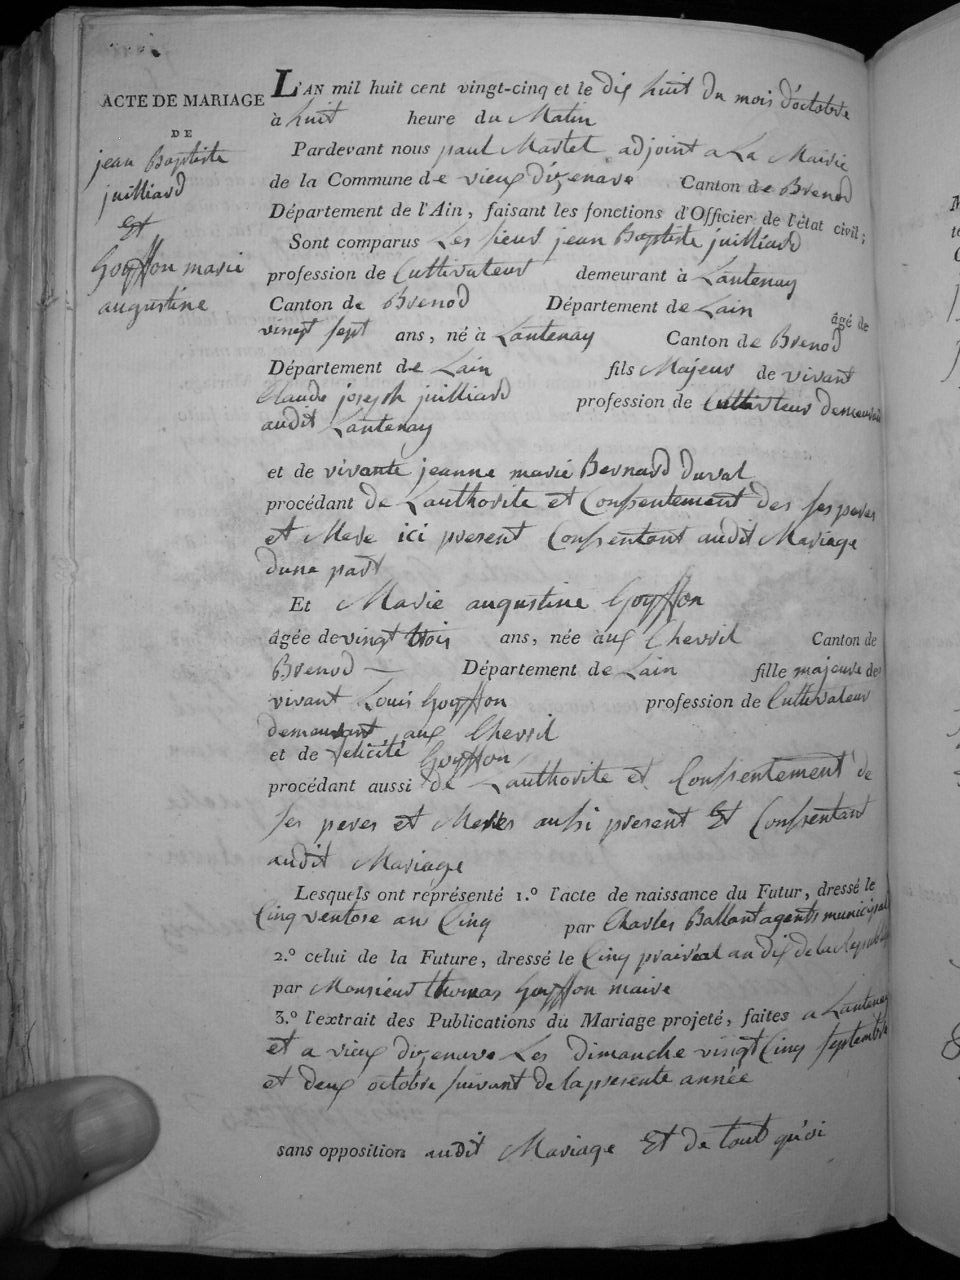 ACTE DE MARIAGE
DE
jean Baptiste
juilliard
Et
Goyffon marie
augustine
L'AN mil huit cent vingt-cinq et le dix huit du mois d'octobre
à huit heure du Matin
Pardevant nous paul Martel adjoint a La Mairie
de la Commune de vieux dizenave Canton de Brenod
Département de l'Ain, faisant les fonctions d'Officier de l'état civil;
Sont comparus Les sieur jean Baptiste juilliard
profession de Cultivateur demeurant à Lantenay
Canton de Brenod Département de Lain âgé de
vingt sept ans, né à Lantenay Canton de Brenod
Département de Lain fils Majeur de vivant
Claude joseph juilliard profession de Cultivateur demeurant
audit Lantenay
et de vivante jeanne marie Bernard duval
procédant de Lauthorite et Consentement des ses peres
et Mere ici present Consentant audit Mariage
dune part
Et Marie augustine Goyffon
âgée de vingt trois ans, née à aux Chevril Canton de
Brenod — Département de Lain fille majeure de
vivant Louis Goyffon profession de Cultivateur
demeurant aux Chevril
et de felicité Goyffon
procédant aussi de Lauthorite et Consentement de
ses peres et Meres aussi present Et Consentant
audit Mariage
Lesquels ont représenté 1.º l'acte de naissance du Futur, dressé le
Cinq ventose an Cinq par Charles Ballant agents municipal
2.º celui de la Future, dressé le Cinq prairéal an dix de la Republique
par Monsieur thomas Goyffon maire
3.º l'extrait des Publications du Mariage projeté, faites a Lantenay
et a vieux dizenave Les dimanche vingt Cinq septembre
et deux octobre suivant de la presente année
sans opposition audit Mariage Et de tout quoi